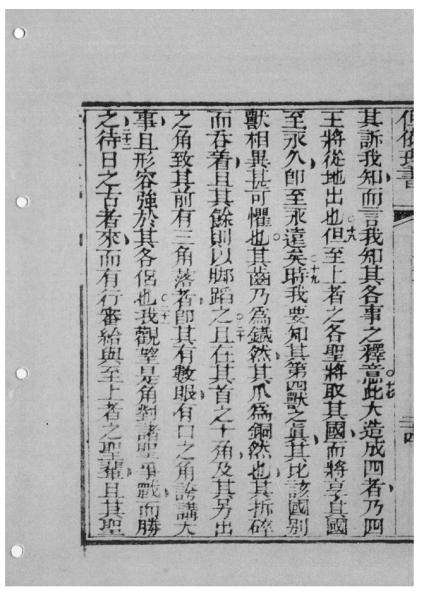 但依理書
二十四
其訴我知而言我知其各事之釋意此大造成四者乃四
〇十七
王將從地出也但至上者之各聖將取其國而將享其國
〇十八
至永久卽至永遠矣時我要知其第四獸之眞其比該國別
〇十九
獸相異甚可懼也其齒乃爲鐵然其爪爲銅然也其拆碎
而吞着且其餘則以脚蹈之且在其首之十角及其另出
〇二十
之角致其前有三角落者卽其有數眼有口之角誇講大
事且形容強於其各侶也我觀望是角對諸聖爭戰而勝
〇二十一
之待日之古者來而有行審給與至上者之聖輩且其聖
〇二十二